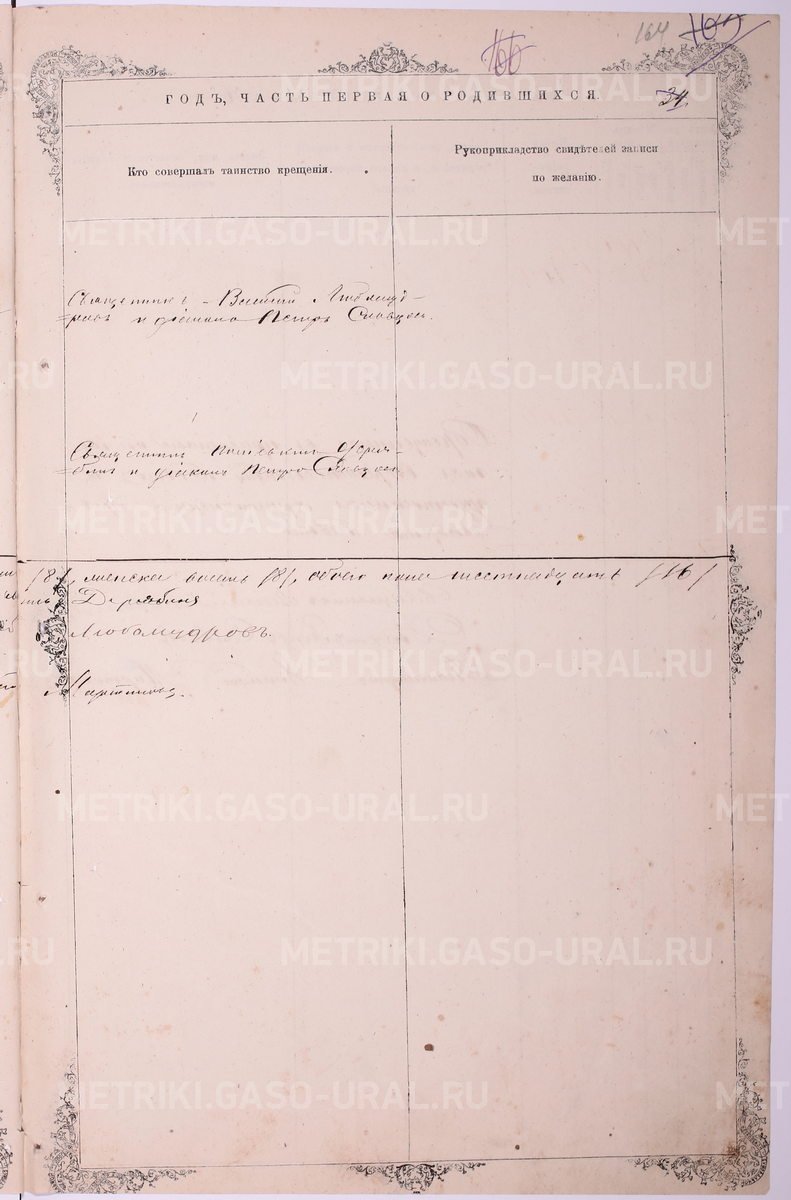 166 164 165
ГОДЪ, ЧАСТЬ ПЕРВАЯ О РОДИВШИХСЯ. 34
Кто совершалъ таинство крещенія.
Рукоприкладство свидѣтелей записи
по желанію.
Священникъ Василій Любомуд-
ровъ и діаконъ Петръ Словцовъ.
Священникъ Деря-
бинъ и діаконъ Петръ Словцовъ
/8/, женска восемь /8/, обоего пола шестнадцать /16/
Дерябинъ
Любомудровъ.
Мартиновъ.
METRIKI.GASO-URAL.RU